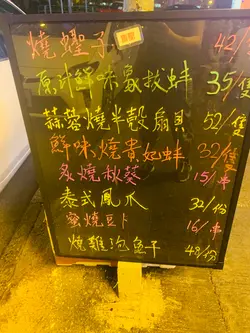 燒蟶子 42/
原汁鮮味象拔蚌 35/隻
蒜蓉燒半殼扇貝 52/隻
鮮味燒貴妃蚌 32/隻
炙燒秋葵 15/串
泰式鳳爪 32/份
蜜燒豆卜 16/串
燒雞泡魚干 48/份